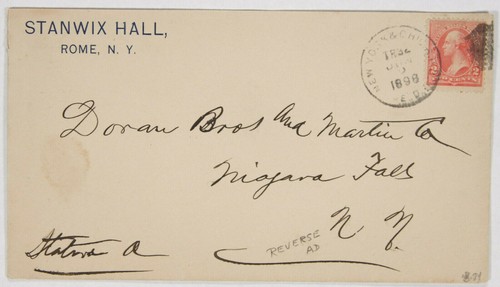 STANWIX HALL,
ROME, N. Y.
NEW YORK & CHI
1898
2 2
Doran Bros And Martin Co
Niagara Falls
N. Y.
REVERSE
AD
Station A